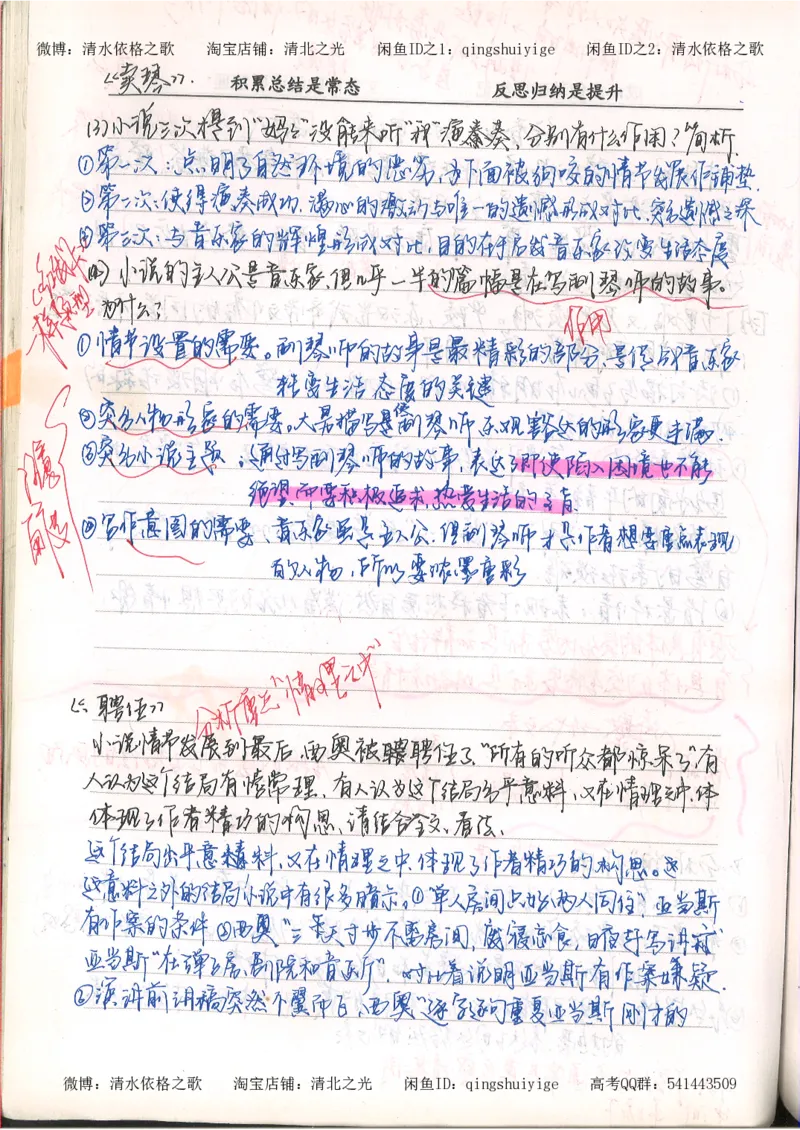 微博：清水依格之歌 淘宝店铺：清北之光 闲鱼ID之1：qingshuiyige 闲鱼ID之2：清水依格之歌
《卖琴》. 积累总结是常态 反思归纳是提升
(3)小说三次提到"妈妈"没能来听"我"演奏奏，分别有什么作用？简析.
①第一次：点明了自然环境的恶劣，为下面被蚊咬的情节发展作铺垫.
②第二次：使得演奏成功，满心的激动与唯一的遗憾形成对比，突出遗憾之深
③第三次：与音乐家的辉煌形成对比，目的在于启发音乐家改变生活态度
(四)小说的主人公是音乐家，但几乎一半的篇幅是在写调琴师的故事。
为什么？
作用
①情节设置的需要。调琴师的故事是最精彩的部分，是促动音乐家
转变生活态度的关键
②突出人物形象的需要。大量描写是使调琴师乐观豁达的形象更丰满.
③突出小说主题：通过写调琴师的故事，表达了即使陷入困境也不能
绝望而要积极追求，热爱生活的主旨.
④写作意图的需要，音乐家虽是主人公，但调琴师才是作者想要重点表现
的人物，所以要浓墨重彩
分析重点"情理之中"
《聘任》
小说情节发展到最后，西奥被聘聘任了，"所有的听众都惊呆了"有
人认为这个结局有悖常理，有人认为这个结局出乎意料，又在情理之中，体
体现了作者精巧的构思，请结合全文，看法.
这个结局出乎意料，又在情理之中，体现了作者精巧的构思。
这意料之外的结局小说中有很多暗示。①"单人房间点始两人同住"，亚当斯
有作案的条件 ②西奥"三天寸步不离房间，废寝忘食，日夜赶写讲稿"
亚当斯"在弹子房、剧院和音乐厅"，对比着说明亚当斯有作案嫌疑.
③演讲前讲稿突然不翼而飞，西奥"逐字逐句重复亚当斯刚才的
微博：清水依格之歌 淘宝店铺：清北之光 闲鱼ID：qingshuiyige 高考QQ群：541443509